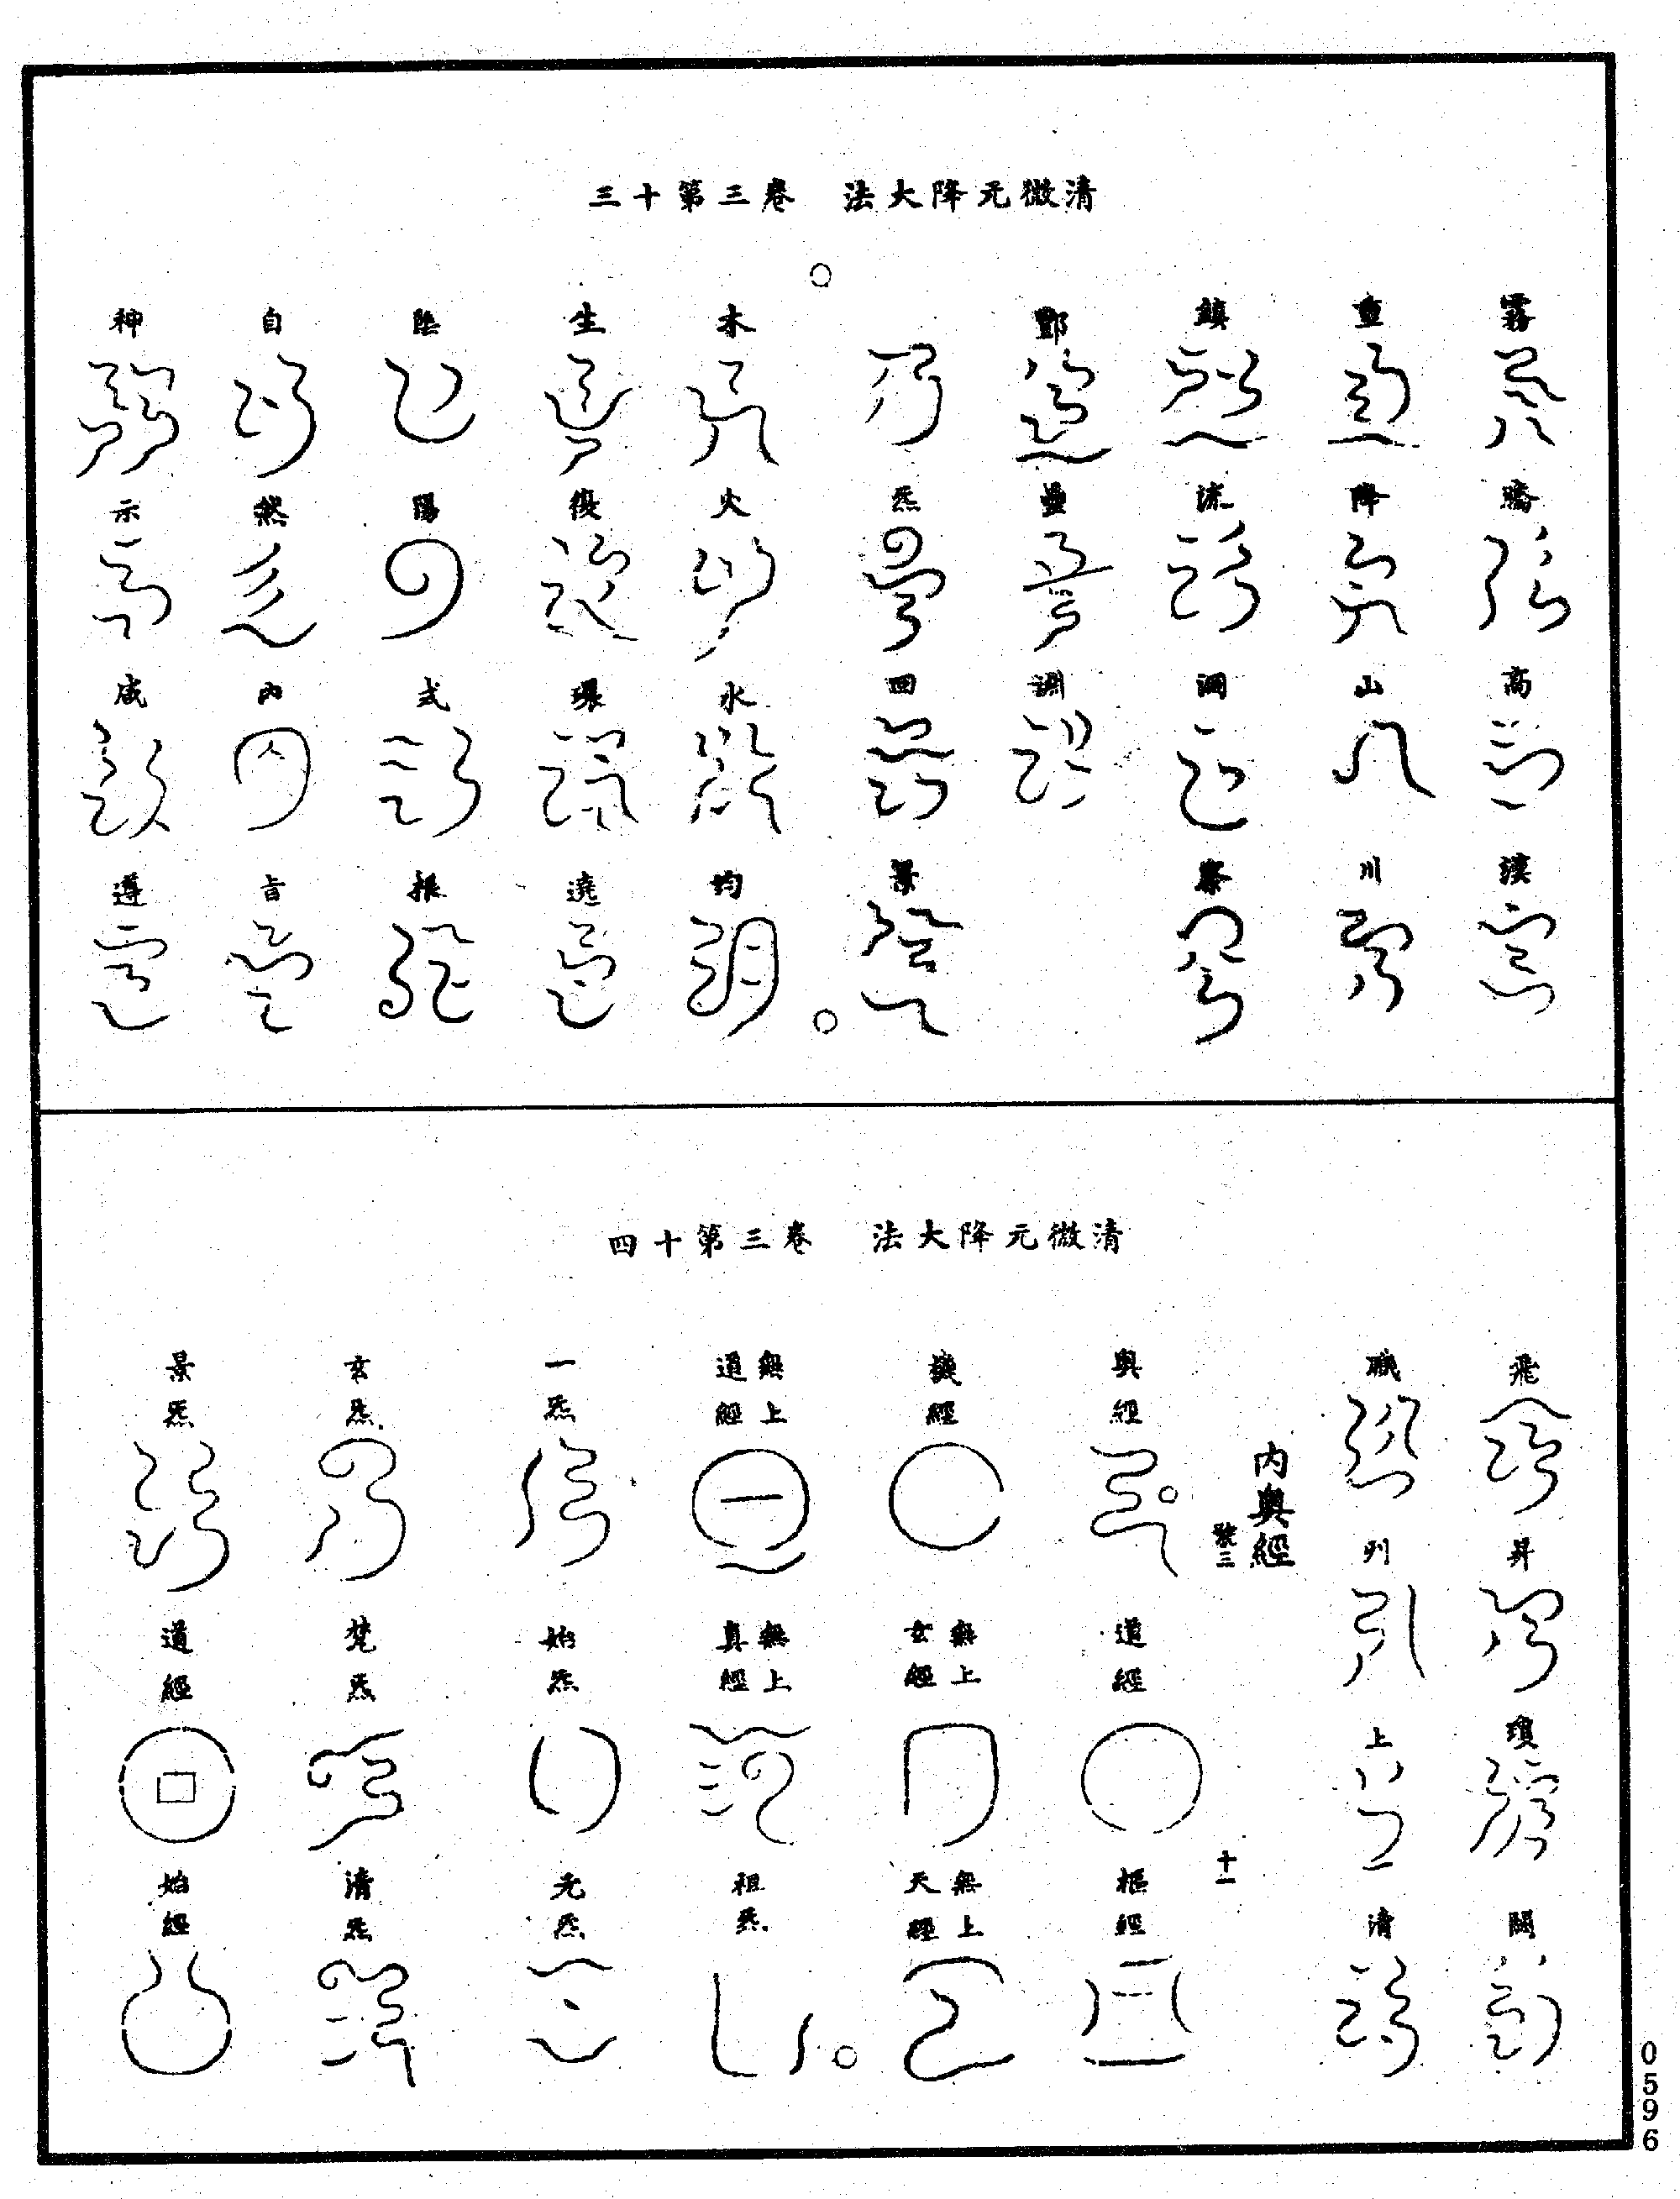 清微元降大法　卷三第十三
霧騰高漠
重降山川
鎮流洞察
酆壘淵
炁回景
木火水均
生復環遶
陰陽式振
自然內旨
神示咸遵
清微元降大法　卷三第十四
飛昇瓊闕
職列上清
內奧經
號三
十一
奧經　道經　樞經
機經　無上玄經　無上天經
無上道經　無上真經　祖炁
一炁　始炁　元炁
玄炁　梵炁　清炁
景炁　道經　始經
0596